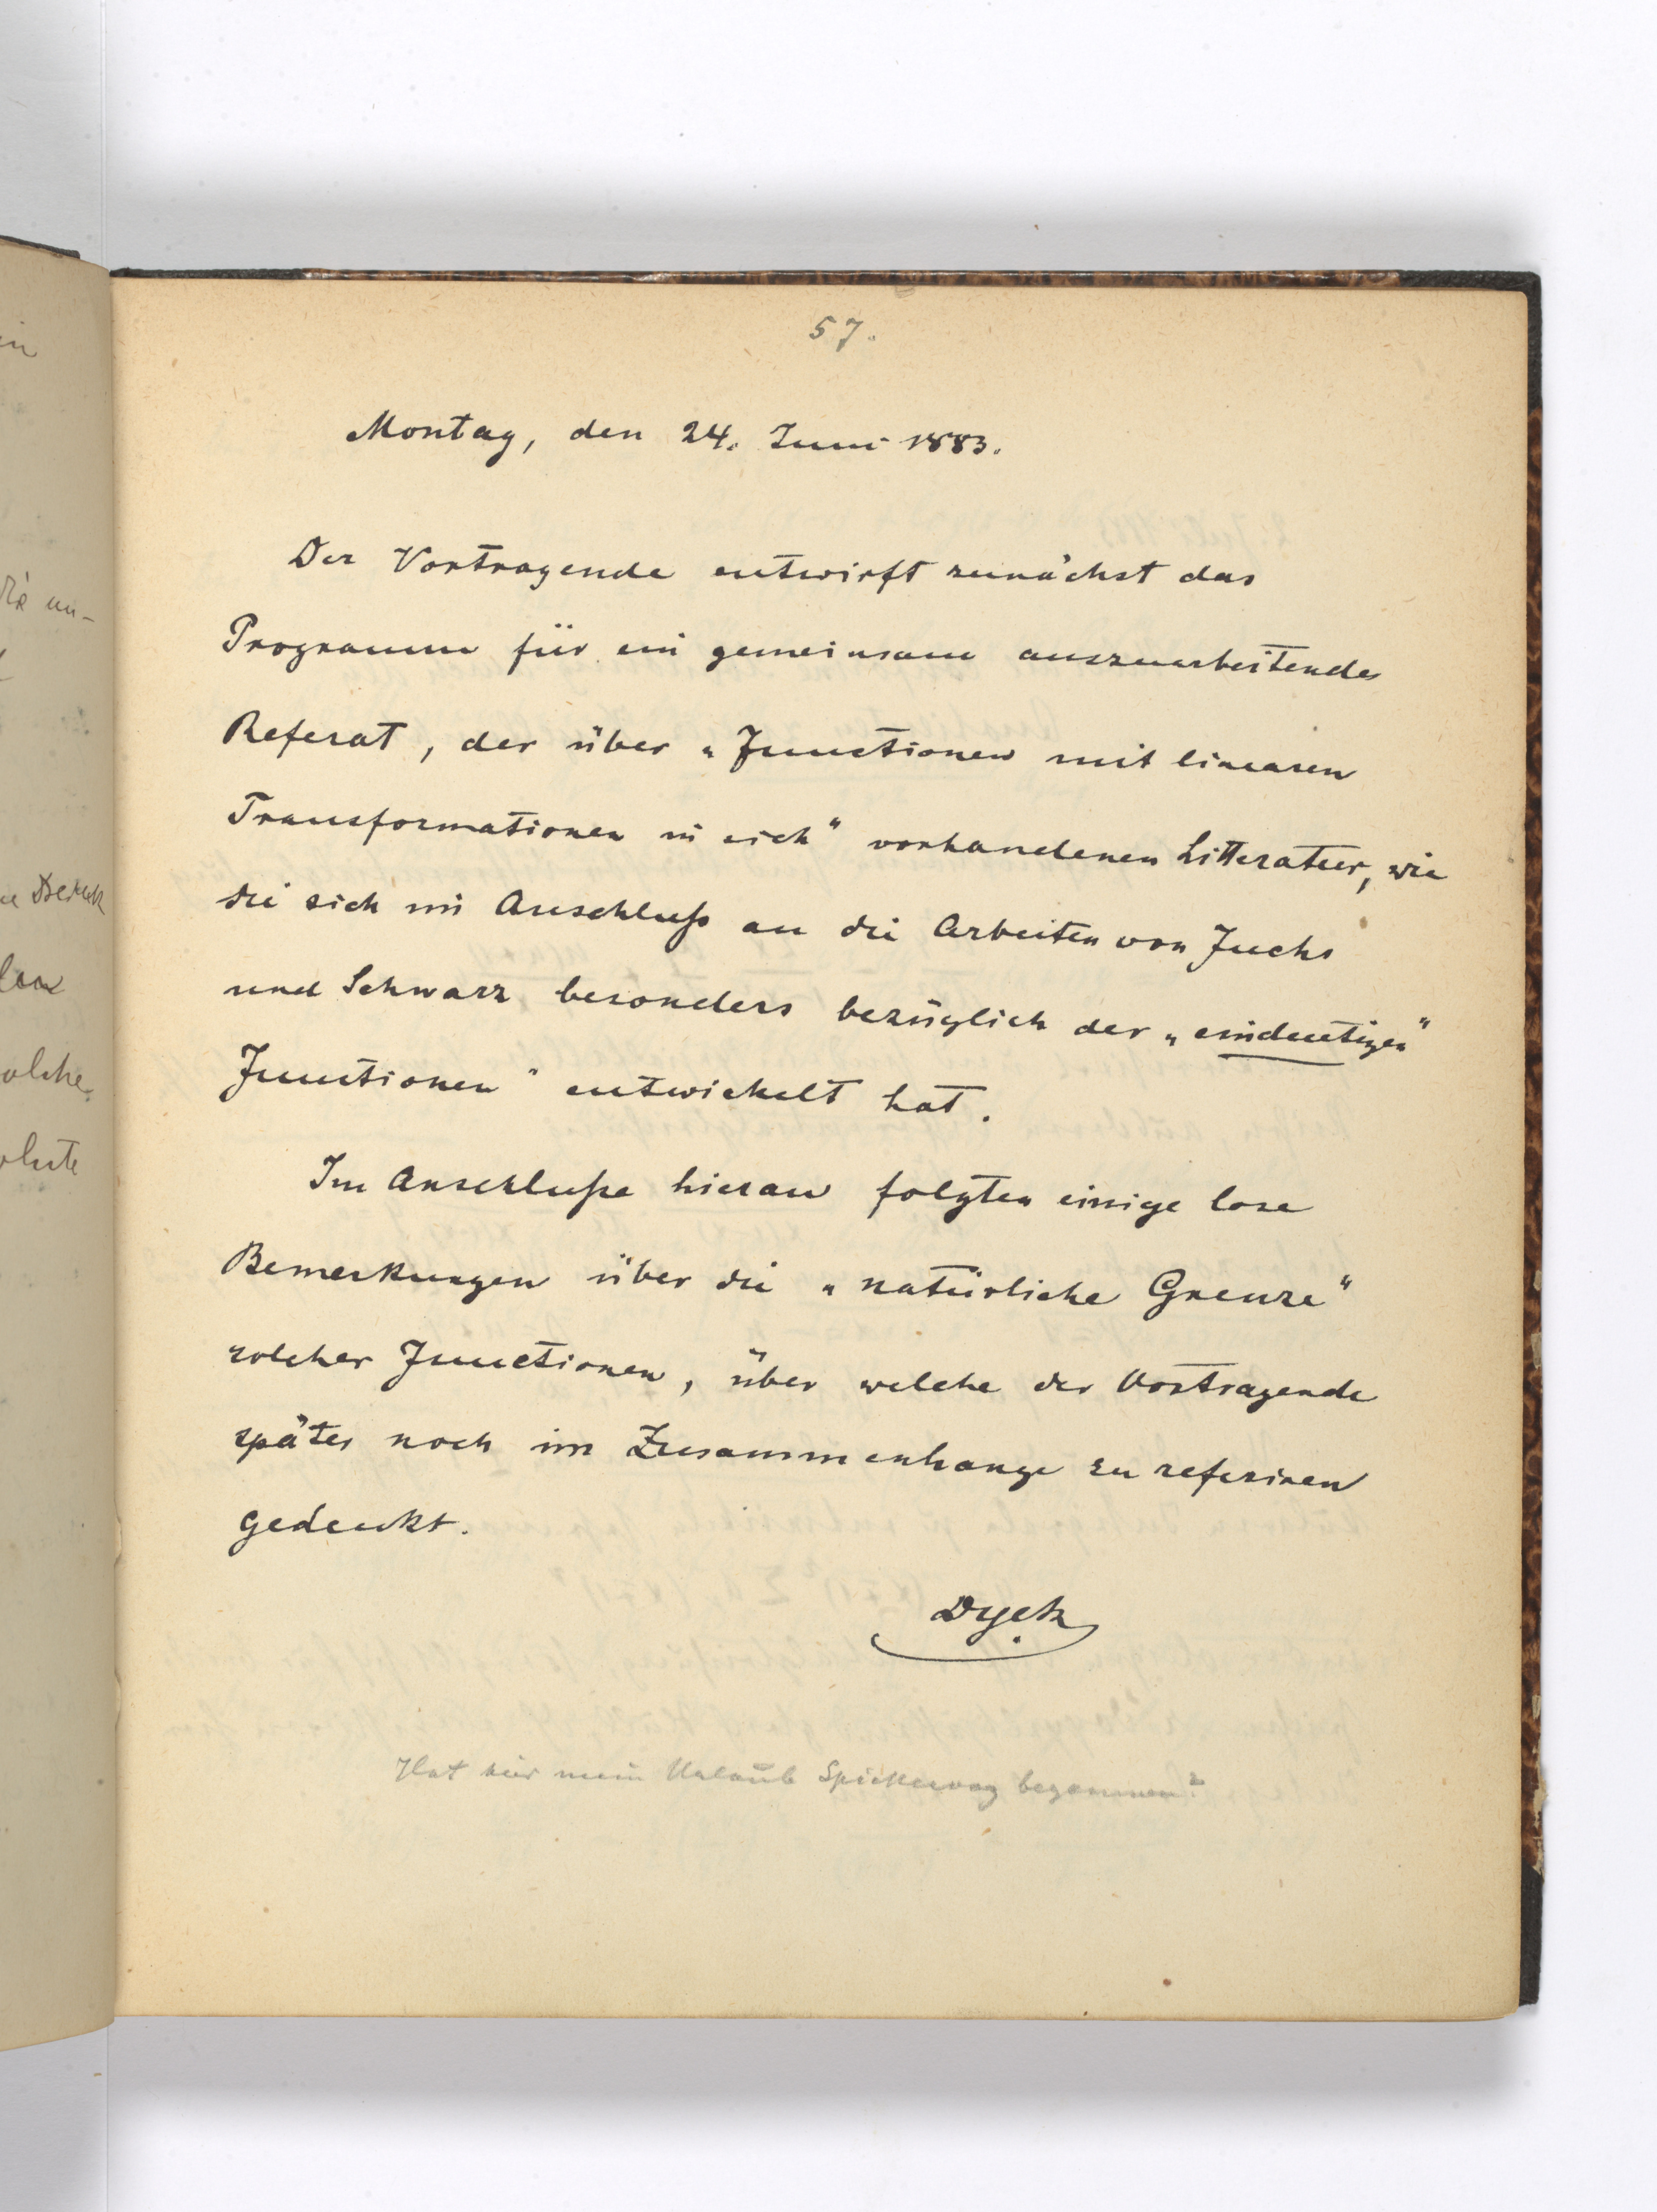 57.
Montag, den 24. Juni 1883.
Der Vortragende entwirft zunächst das
Programm für ein gemeinsam auszuarbeitendes
Referat, der über „Functionen mit linearen
Transformationen in sich“ vorhandenen Litteratur, wie
die sich im Anschluß an die Arbeiten von Fuchs
und Schwarz besonders bezüglich der „eindeutigen“
Functionen“ entwickelt hat.
Im Anschluße hieran folgten einige lose
Bemerkungen über die „natürliche Grenze“
solcher Functionen, über welche der Vortragende
später noch im Zusammenhange zu referiren
gedenkt.
Dyck
Hat hier mein Urlaub Spiekeroog begonnen?